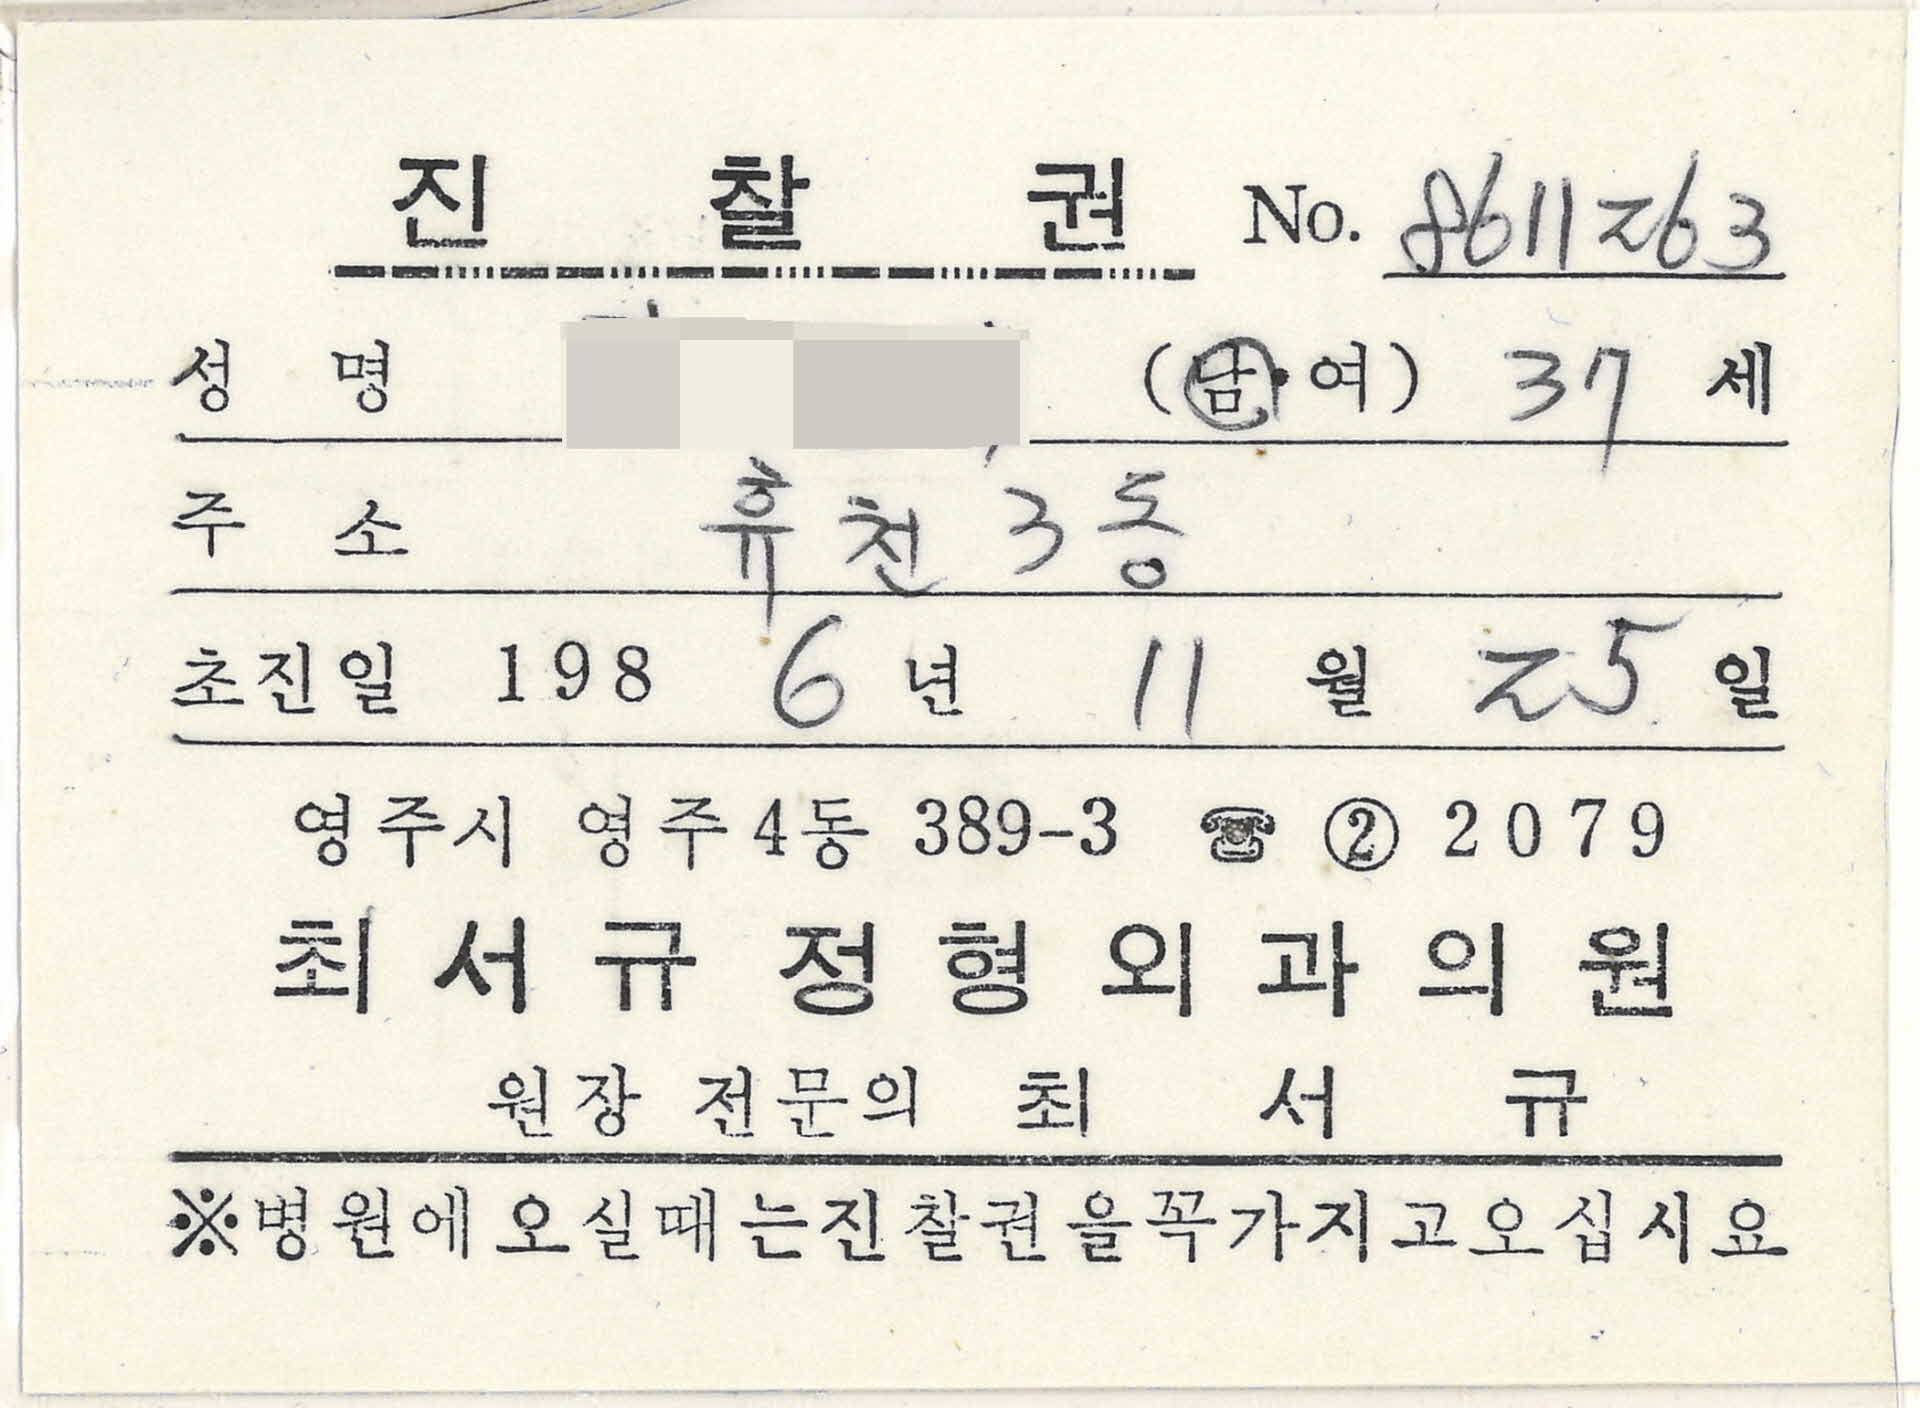 진 찰 권 No. 8611263
성 명 (남·여) 37 세
주 소 휴천 3동
초진일 198 6 년 11 월 25 일
영주시 영주4동 389-3 ☎ ② 2079
최서규정형외과의원
원장 전문의 최 서 규
※병원에오실때는진찰권을꼭가지고오십시요